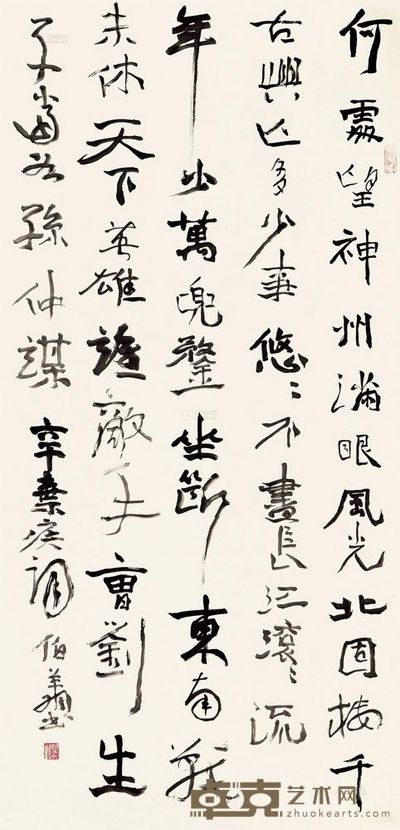 何處望神州滿眼風光北固樓千
古興亡多少事悠〻不盡長江滾〻流
年少萬兜鍪坐斷東南戰
未休天下英雄誰敵手曹劉生
子當若孫仲謀 辛棄疾詞 伯
卓克艺术网
zhuokearts.com